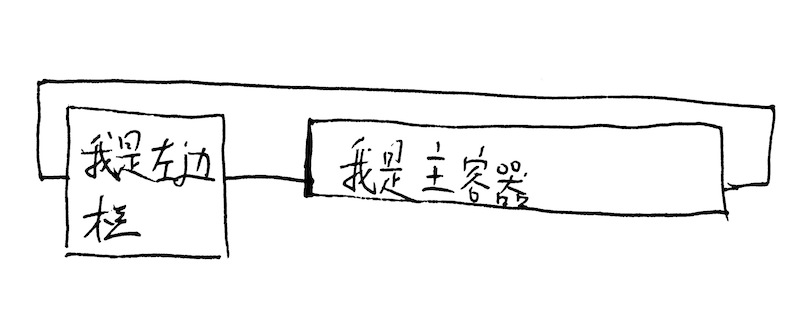 我是左边
栏
我是主容器